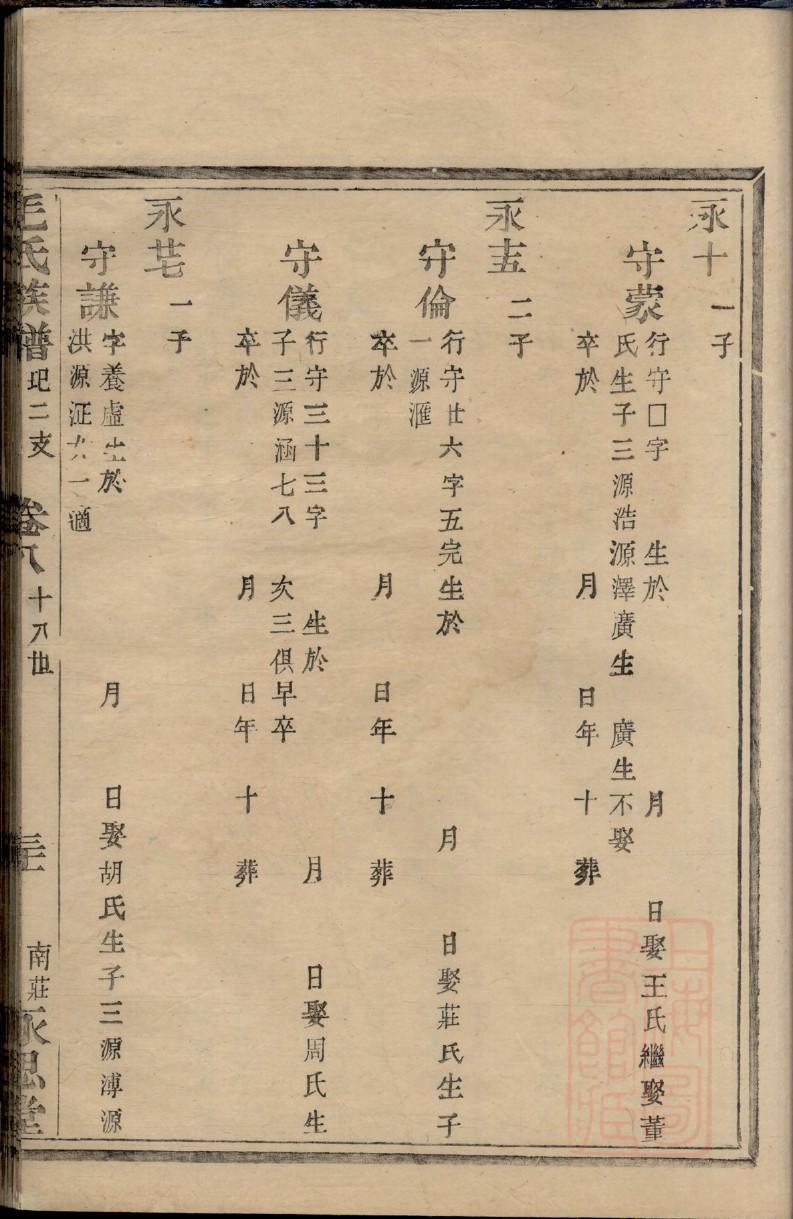 永十
一子
守蒙
行守□字 生於 月 日娶王氏繼娶董
氏生子三源浩源澤廣生 廣生不娶
卒於 月 日年 十 葬
永十五
二子
守倫
行守廿六字五完生於 月 日娶莊氏生子
一源滙
卒於 月 日年 十 葬
守儀
行守三十三字 生於 月 日娶周氏生
子三源涵七八 女三俱早卒
卒於 月 日年 十 葬
永廿七
一子
守謙
字養虛生於 月 日娶胡氏生子三源溥源
洪源泟女一適
毛氏族譜 圯二支 卷八 十八世 三二 南莊永思堂
上海圖書館藏